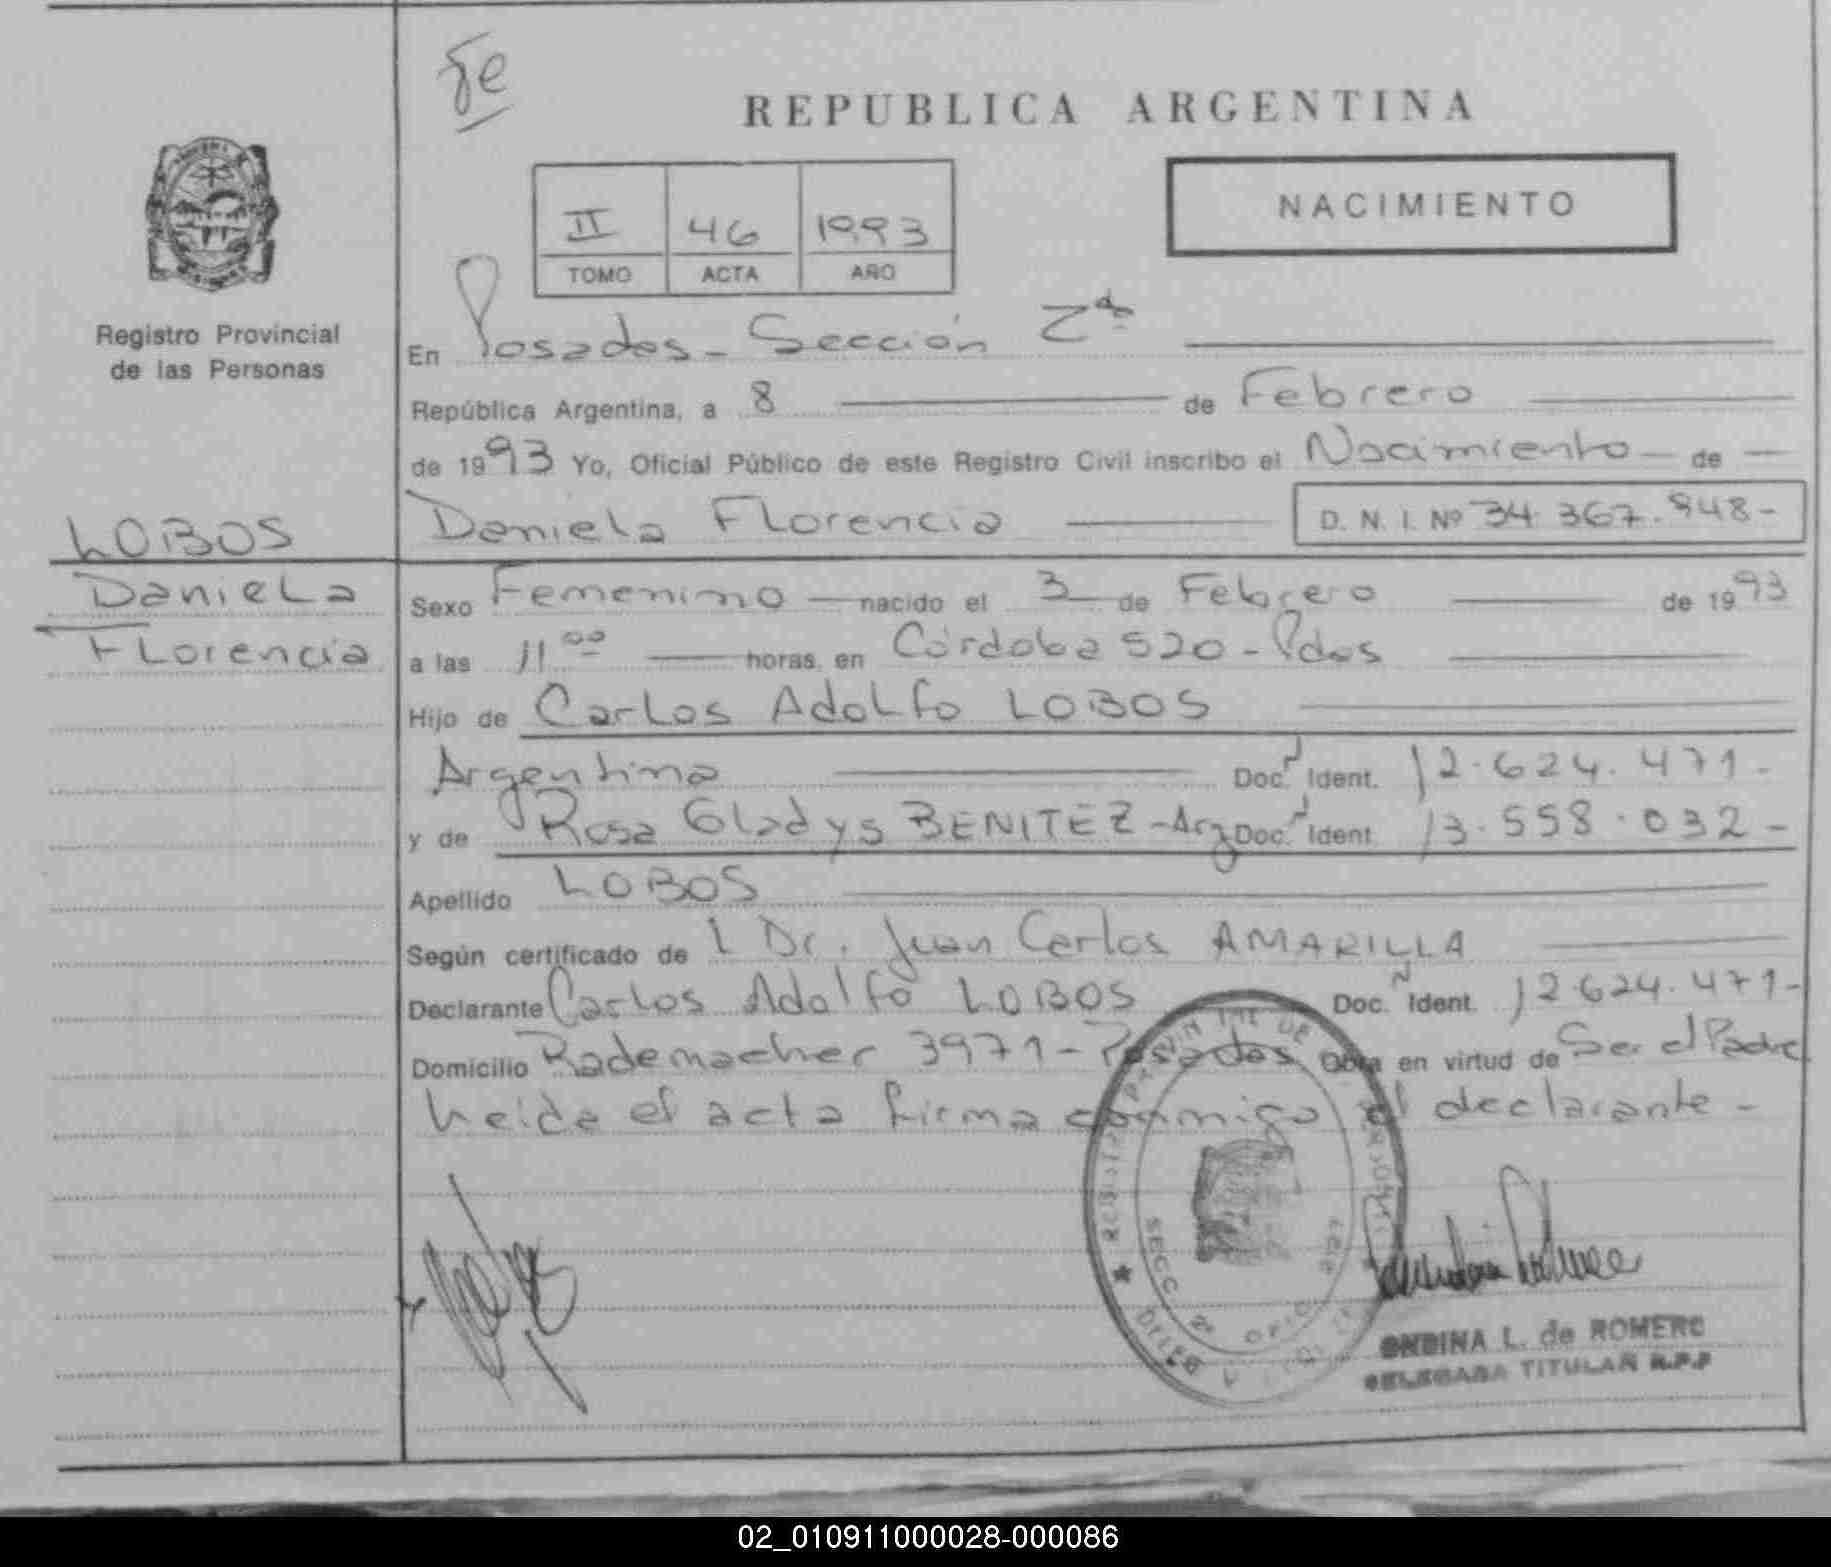 fe
REPUBLICA ARGENTINA
NACIMIENTO
II 46 1993
TOMO ACTA AÑO
Registro Provincial
de las Personas
LOBOS
Daniela
Florencia
En Posadas - Sección 2da
República Argentina, a 8 de Febrero
de 1993 Yo, Oficial Público de este Registro Civil inscribo el Nacimiento de
Daniela Florencia D. N. I. Nº 34.367.948-
Sexo Femenino nacido el 3 de Febrero de 1993
a las 11 00 horas, en Córdoba 520 - Pdas
Hijo de Carlos Adolfo LOBOS
Argentina Doc. Ident. 12.624.471-
y de Rosa Gladys BENITEZ - Arg Doc. Ident. 13.558.032-
Apellido LOBOS
Según certificado de l Dr. Juan Carlos AMARILLA
Declarante Carlos Adolfo LOBOS Doc. Ident. 12.624.471-
Domicilio Rademacher 3971 - Posadas Obra en virtud de Ser el Padre
Leida el acta firma conmigo el declarante -
SECC 2ª
ONDINA L. de ROMERO
DELEGADA TITULAR R.P.P
02_010911000028-000086